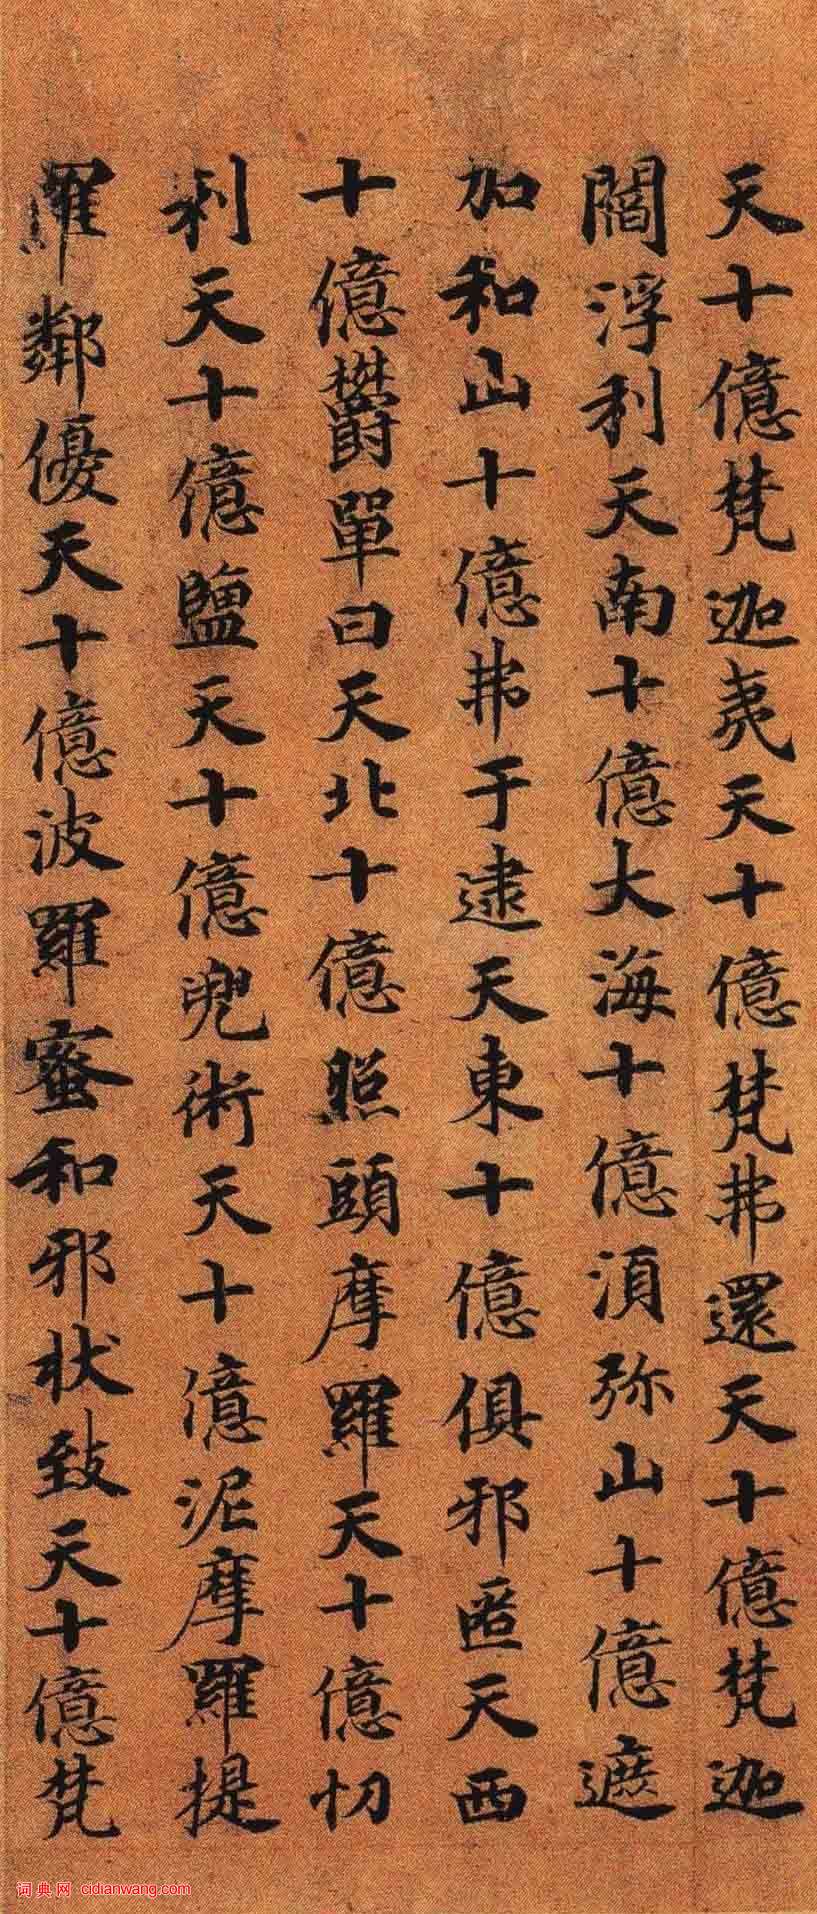 天十億梵迦夷天十億梵弗還天十億梵迦
閻浮利天南十億大海十億須弥山十億遮
加和山十億弗于逮天東十億俱邪匿天西
十億欝單曰天北十億照頭摩羅天十億忉
利天十億鹽天十億兜術天十億泥摩羅提
羅鄰優天十億波羅蜜和邪状致天十億梵
词典网 cidianwang.com